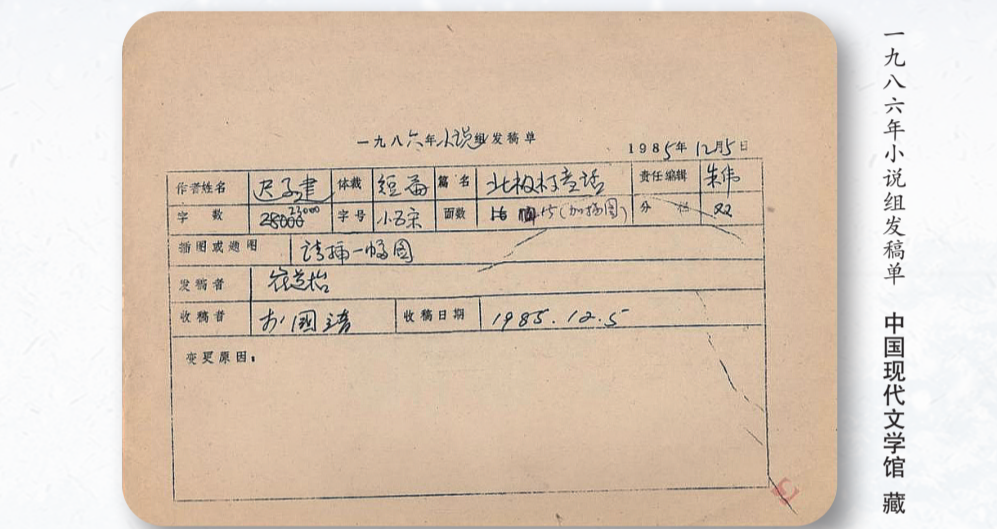 一九八六年小说组发稿单
1985年12月5日
作者姓名 迟子建 体裁 短篇 篇名 北极村童话 责任编辑 朱伟
字数 28000 23000 字号 小5宋 面数 15(加插图) 分栏 双
插图或题图 请插一幅图
发稿者 崔道怡
收稿者 国靖 收稿日期 1985.12.5
变更原因:
一九八六年小说组发稿单 中国现代文学馆 藏